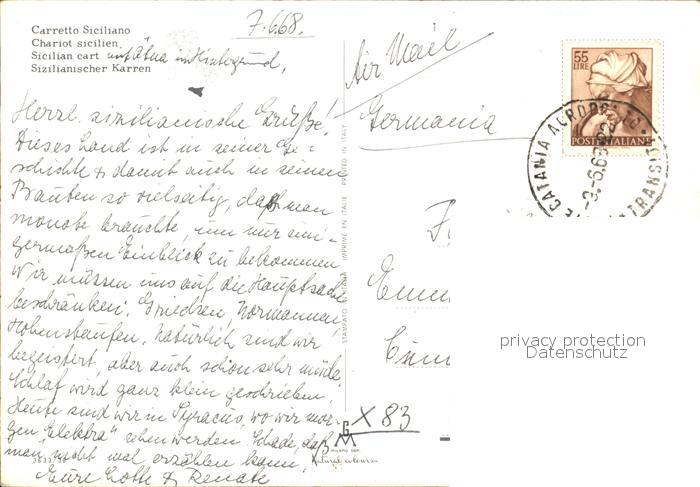 7.6.68.
Carretto Siciliano
Chariot sicilien.
Sicilian cart mit Ätna im Hintergrund,
Sizilianischer Karren
Herzl. sizilianische Grüße!
Dieses Land ist in seiner Ge-
schichte & damit auch in seinen
Bauten so vielseitig, daß man
monate brauchte, um nur eini-
germaßen Einblick zu bekommen
Wir müssen uns auf die Hauptsache
beschränken: Griechen, Normannen,
Hohenstaufen. Natürlich sind wir
begeistert, aber auch schon sehr müde.
Schlaf wird ganz klein geschrieben.
Heute sind wir in Syracus, wo wir mor-
gen „Elektra" sehen werden. Schade, daß
man's nicht mal erzählen kann,
Eure Lotte & Renate
STAMPATO IN ITALIA IMPRIMÉ EN ITALIE PRINTED IN ITALY
Air Mail
Germania
55
LIRE
POSTE ITALIANE
CATANIA AEROPORTO
-9.-6.68
TRANSITI
privacy protection
Datenschutz
X 83
G
M
MILANO
Natural colour